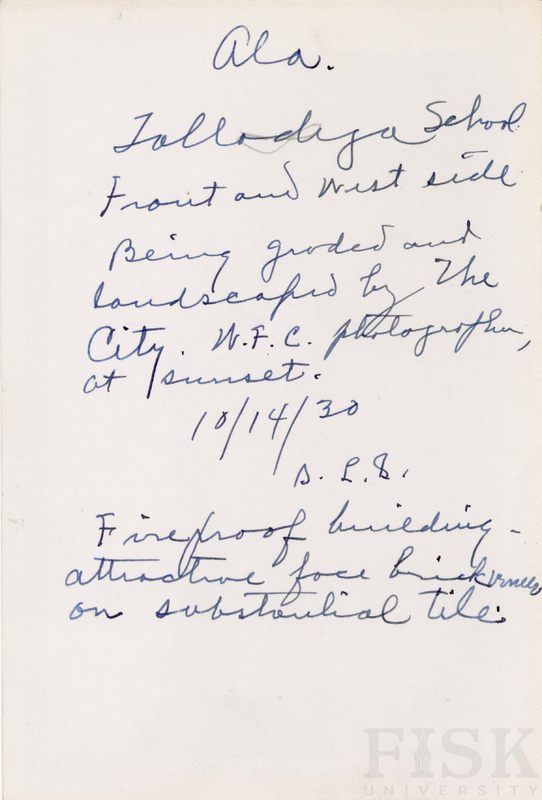 Ala.
Talladega School
Front and West side
Being graded and
landscaped by The
City. W.F.C. photographer,
at sunset.
10/14/30
S. L. S.
Fireproof building -
attractive face brick veneer
on substantial tile.
FISK
UNIVERSITY